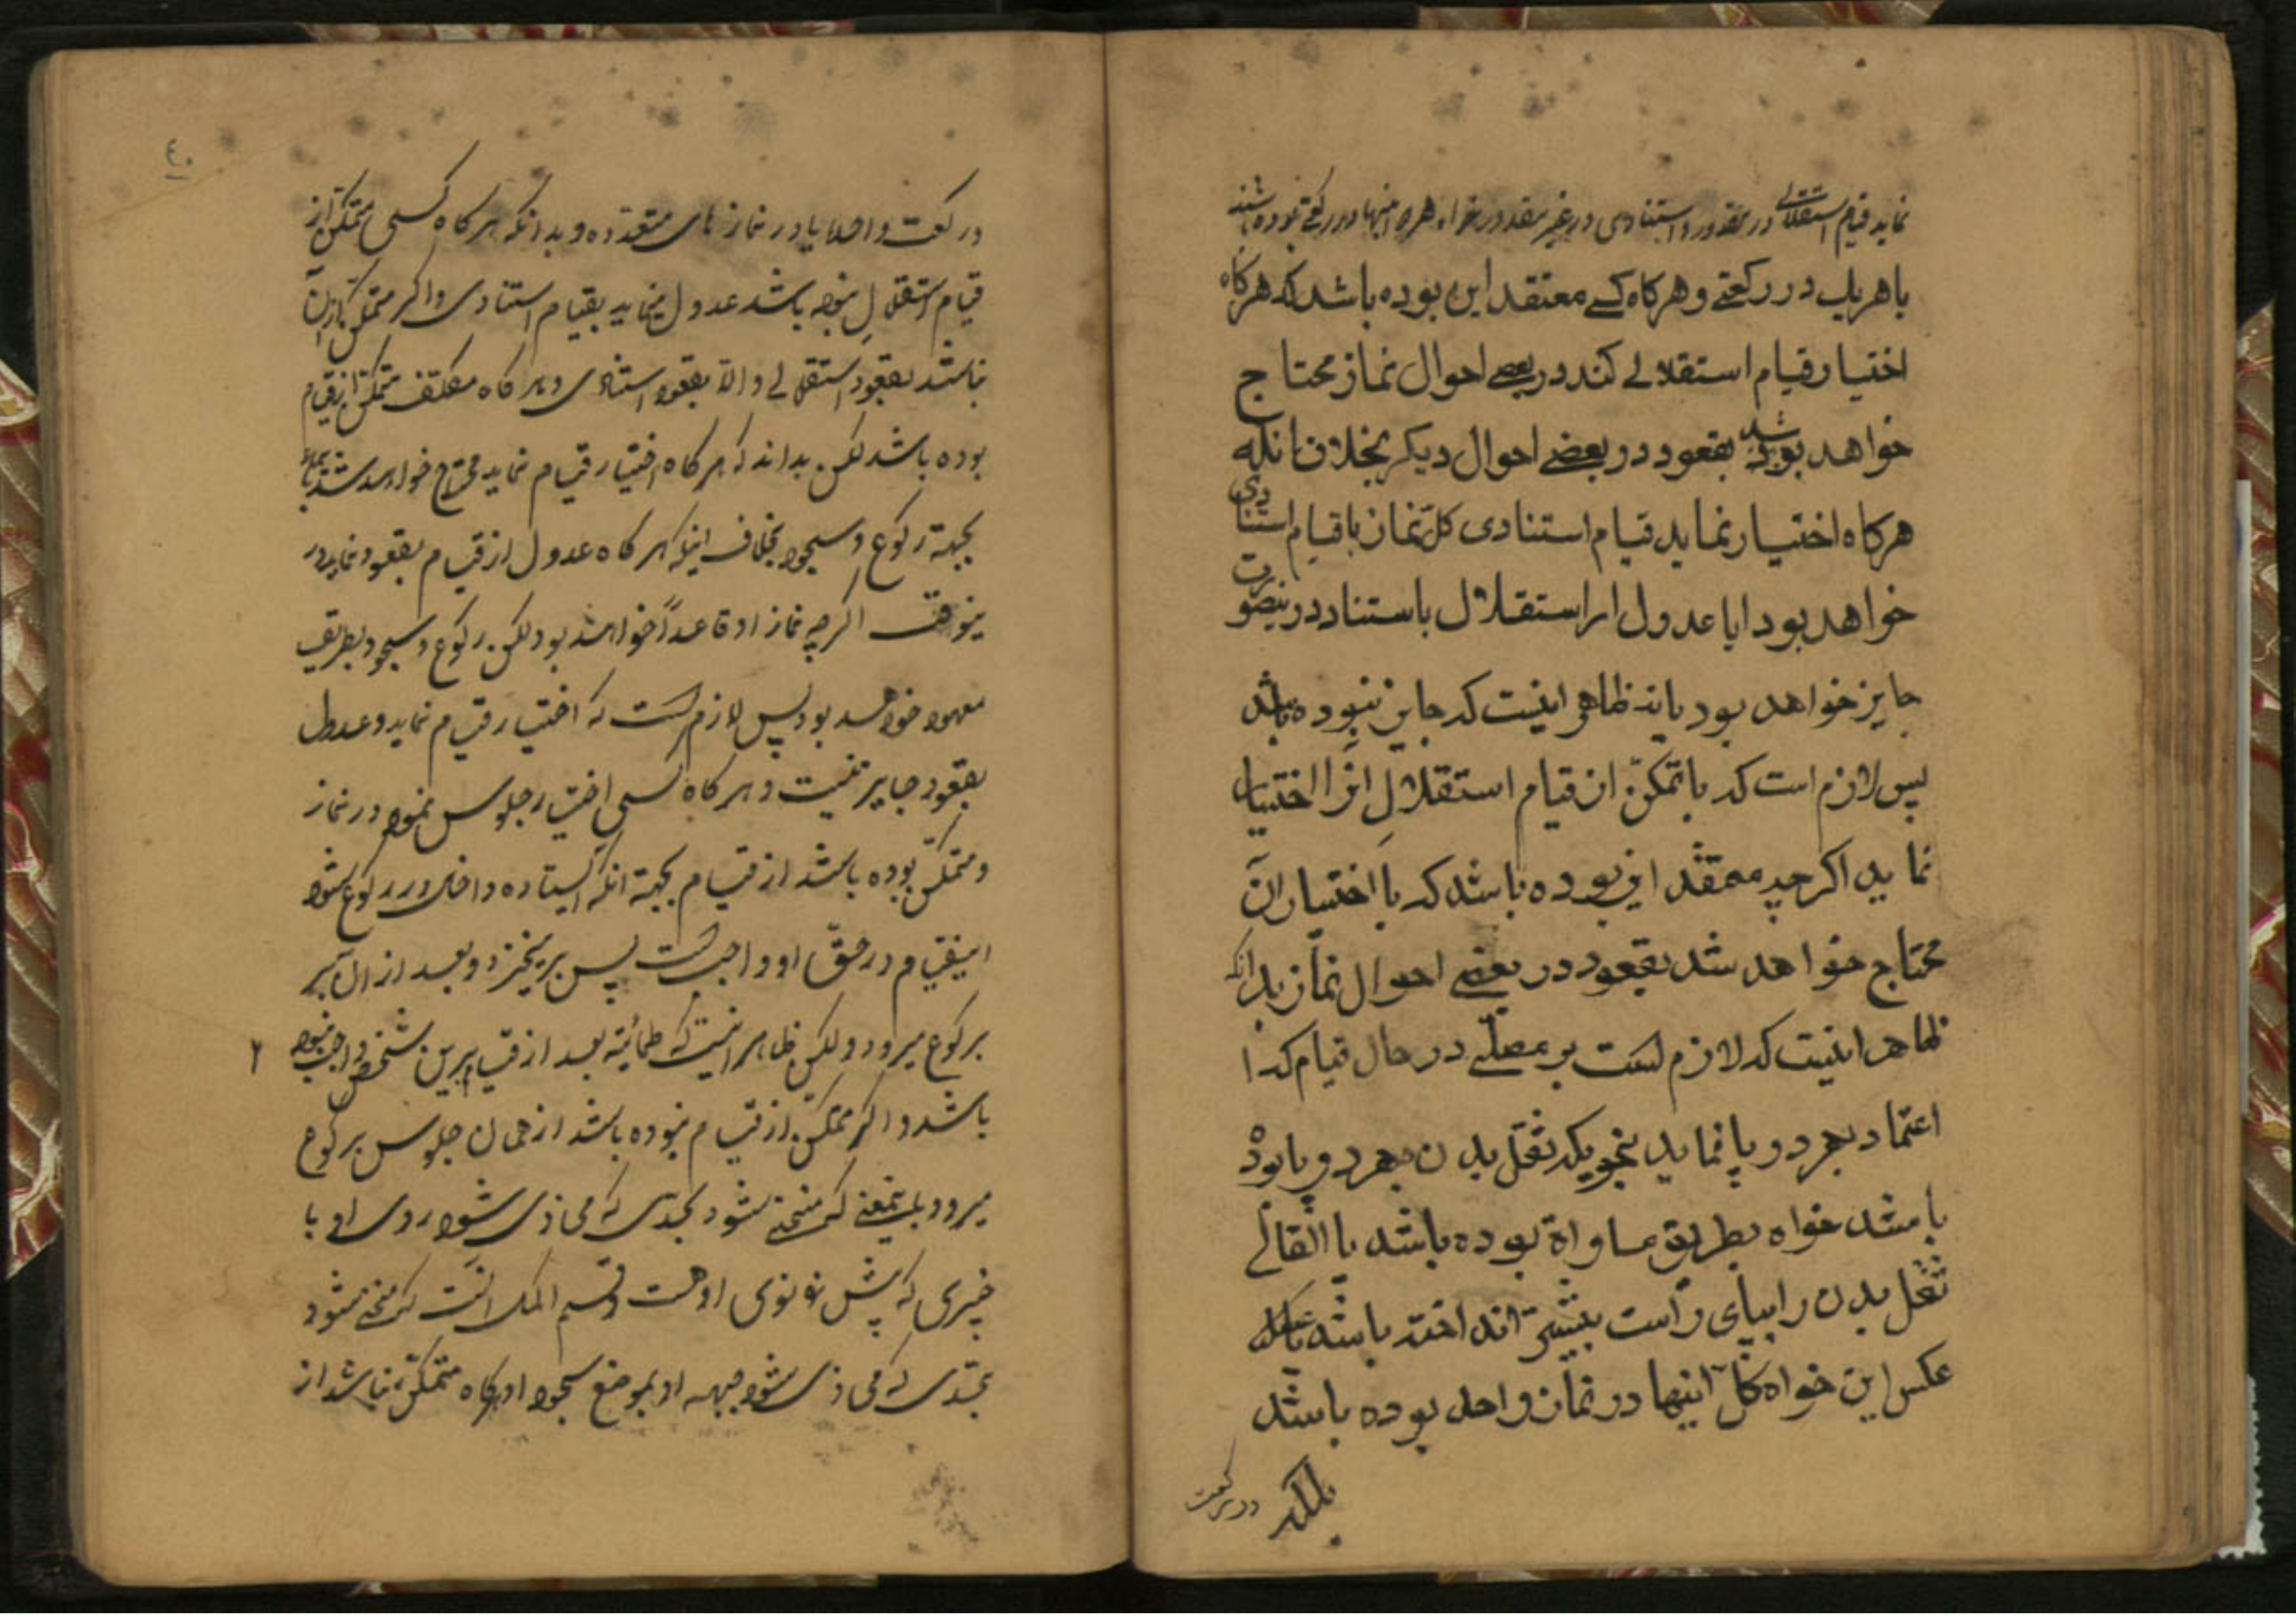 نماید قیام استقلالی در مقدور و استنادی در غیر مقدور خواه همه اینها در رکعتی بوده باشند
یا هر یک در رکعتی و هرکاه کسے معتقد این بوده باشد که هرکاه
اختیار قیام استقلالے کند در بعضے احوال نماز محتاج
خواهد شد بقعود در بعضے احوال دیکر بخلاف انکه
هرکاه اختیار نماید قیام استنادی کل نماز با قیام استنادی
خواهد بود ایا عدول از استقلال باستناد درینصورت
جایز خواهد بود یا نه ظاهر اینست که جایز نبوده باشد
پس لازم است که با تمکّن از قیام استقلالِ انرا اختیار
نماید اکرچه معتقد این بوده باشد که با اختیار آن
محتاج خواهد شد بقعود در بعضے احوال نماز بدانکه
ظاهر اینست که لازم است بر مصلّے در حال قیام که ا
اعتماد بهر دو پا نماید بنحویکه ثقل بدن بهر دو پا بوده
باشد خواه بطریق مساواة بوده باشد یا القای
ثقل بدن را بپای راست بیشتر انداخته باشد یا
عکس این خواه کل اینها در نماز واحد بوده باشد
بلکه
در رکعت
٤٠
در رکعت واحد یا در نماز های متعدده و بدانکه هرکاه کسی متمکّن از
قیام استقلالِ نبوده باشد عدول مینماید بقیام استنادی و اکر متمکن از آن
نباشد بقعود استقلالے و الّا بقعود استنادی و هرکاه مکلف متمکّن از قیام
بوده باشد لکن بداند که هرکاه اختیار قیام نماید محتاج خواهد شد
بجهة رکوع و سجود بخلاف اینکه هرکاه عدول از قیام بقعود نماید در
ینوقت اکرچه نماز او قاعداً خواهد بود لکن رکوع و سجود بطریق
معهود خواهد بود پس لازم است که اختیار قیام نماید و عدول
بقعود جایز نیست و هرکاه کسی اختیار جلوس نمود در نماز
و متمکّن بوده باشد از قیام بجهة انکه ایستاده داخل در رکوع شود
اینقیام در حقّ او واجب است پس برمیخیزد و بعد از آن
برکوع میرود و لکن ظاهر اینست که طمأنینه بعد از قیام برین شخص واجب نبوده
۲
باشد و اکر متمکّن از قیام نبوده باشد از همان جلوس برکوع
میرود باینمعنے که منحنے شود بحدی که محاذی شود روی او با
چیزی که پیش زانوی او هست و قسم اکمل انست که منحنے شود
بحدی که محاذی شود جبهه او بموضع سجود او هرکاه متمکّن نباشد از